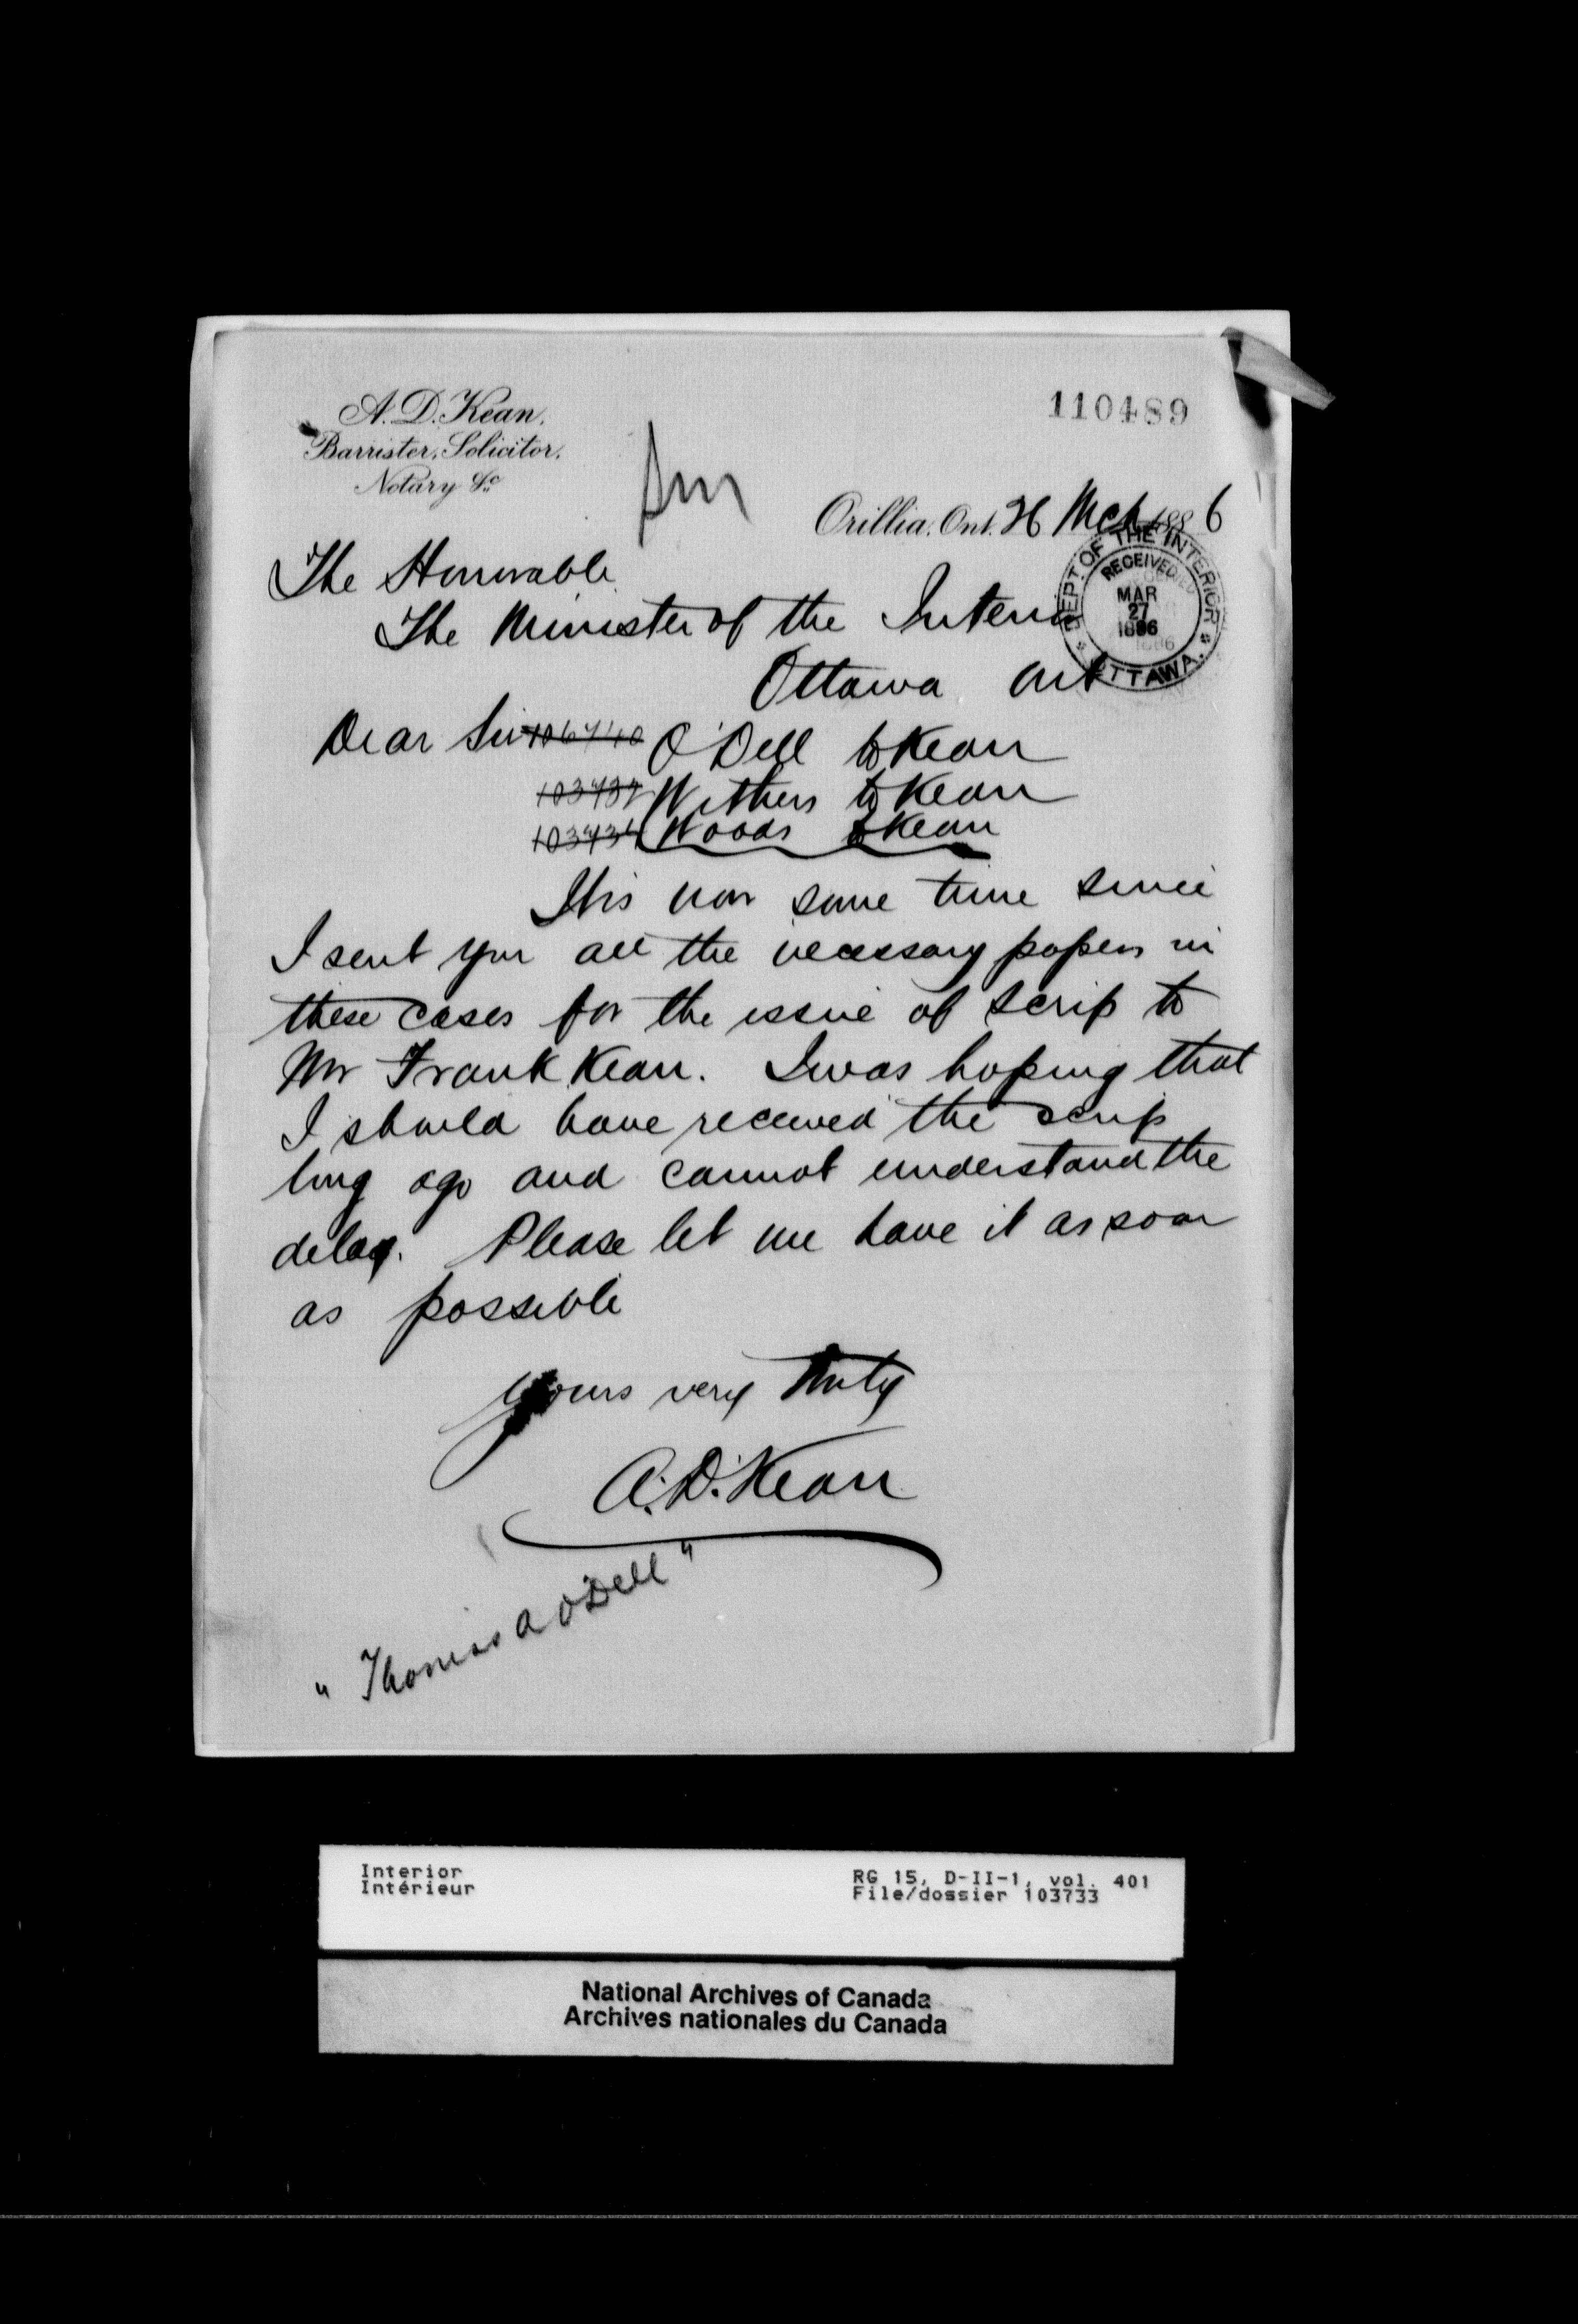 A. D. Kean,
Barrister, Solicitor,
Notary &c
110489
Orillia, Ont. 26 Mch 1886
DEPT OF THE INTERIOR
RECEIVED
MAR
27
1886
OTTAWA.
The Honorable
The Minister of the Interior
Ottawa Ont
Dear Sir 106740 O'Dell to Kean
Withers to Kean
Woods to Kean
It is now some time since
I sent you all the necessary papers in
these cases for the issue of scrip to
Mr Frank Kean. I was hoping that
I should have received the scrip
long ago and cannot understand the
delay. Please let me have it as soon
as possible
Yours very truly
A. D. Kean
"Thomas A O'Dell"
Interior
Intérieur
RG 15, D-II-1, vol. 401
File/dossier 103733
National Archives of Canada
Archives nationales du Canada